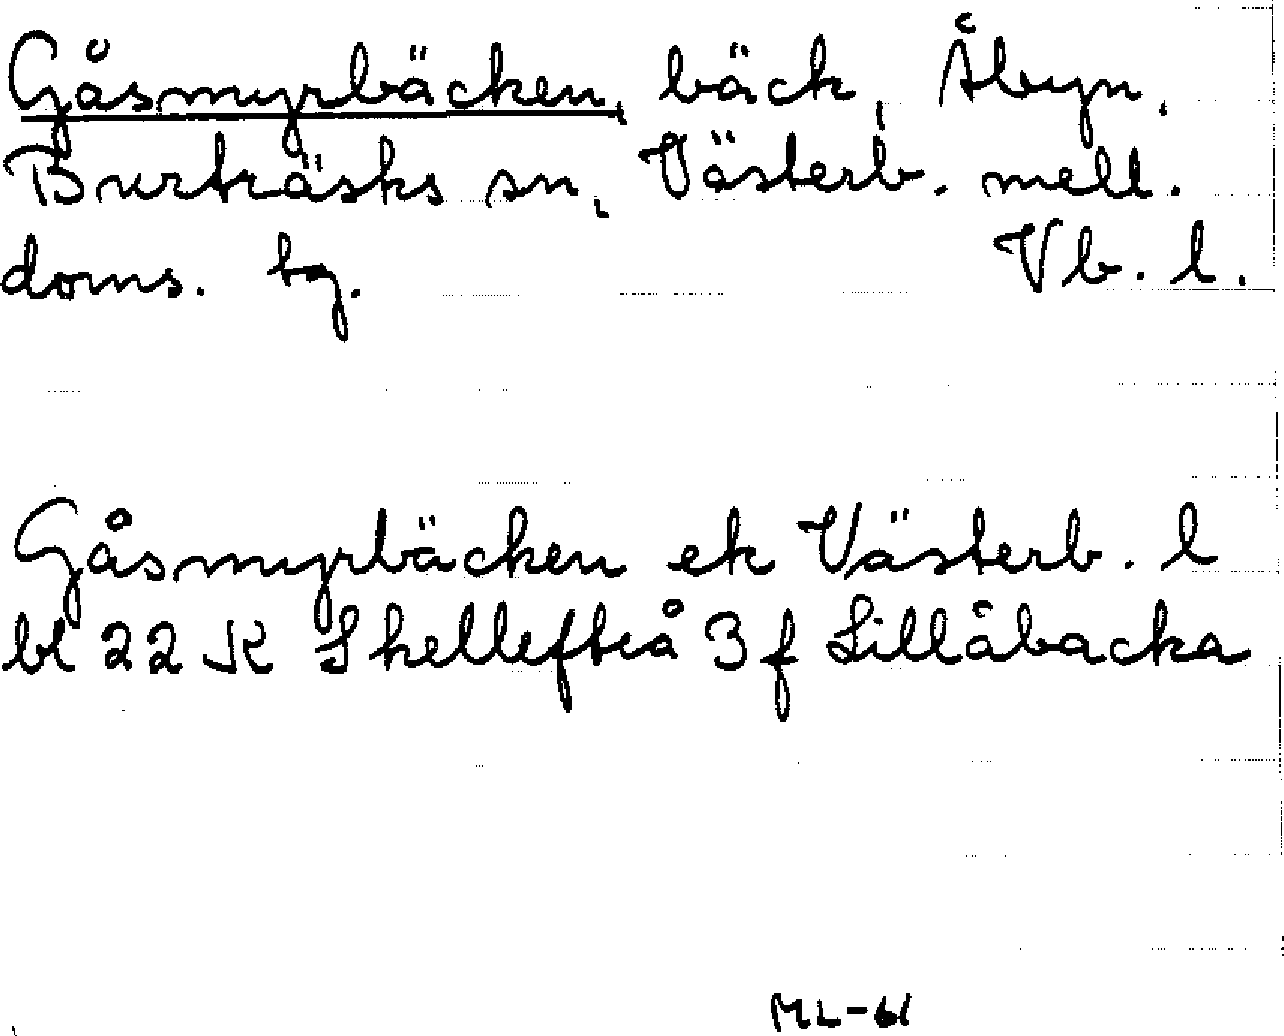 Gåsmyrbäcken, bäck, Åbyn,
Burträsks sn, Västerb. mell.
doms. tg. Vb. l.
Gåsmyrbäcken ek Västerb. l
bl 22 K Skellefteå 3 f Lillåbacka
ML-61